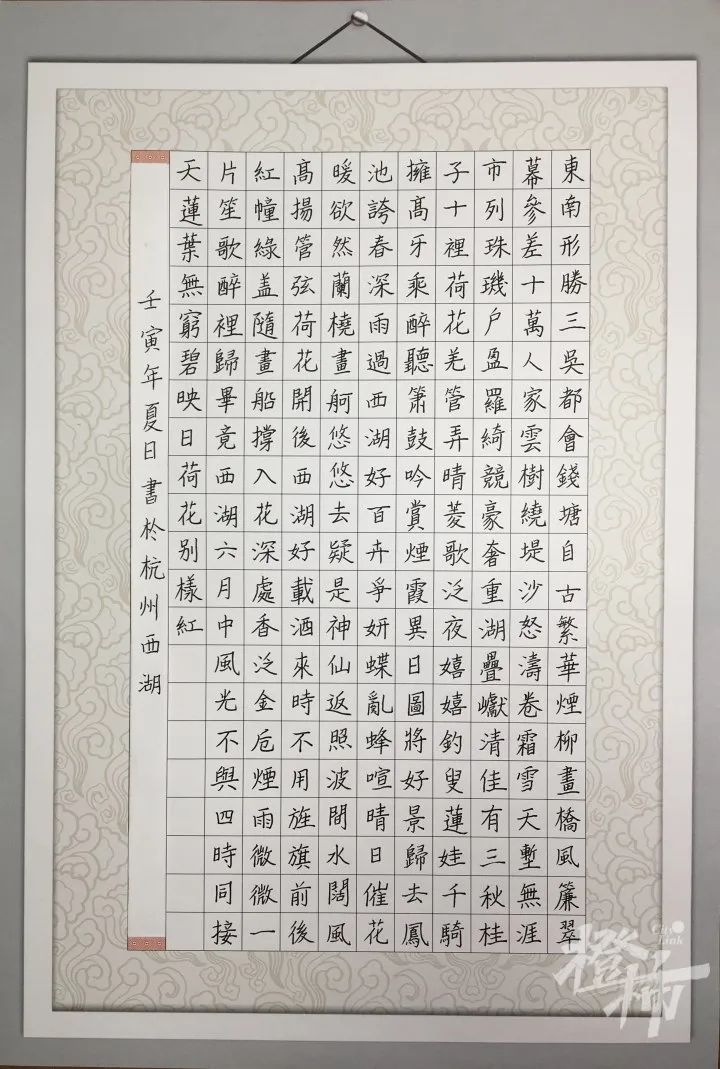 東南形勝三吳都會錢塘自古繁華煙柳畫橋風簾翠
幕參差十萬人家雲樹繞堤沙怒濤卷霜雪天塹無涯
市列珠璣户盈羅綺競豪奢重湖疊巘清佳有三秋桂
子十裡荷花羌管弄晴菱歌泛夜嬉嬉釣叟蓮娃千騎
擁髙牙乘醉聽簫鼓吟賞煙霞異日圖將好景歸去鳳
池誇春深雨過西湖好百卉爭妍蝶亂蜂喧晴日催花
暖欲然蘭橈畫舸悠悠去疑是神仙返照波間水闊風
髙揚管弦荷花開後西湖好載酒來時不用旌旗前後
紅幢綠盖隨畫船撐入花深處香泛金卮煙雨微微一
片笙歌醉裡歸畢竟西湖六月中風光不與四時同接
天蓮葉無窮碧映日荷花别樣紅
壬寅年夏日書於杭州西湖
橙柿
City Link